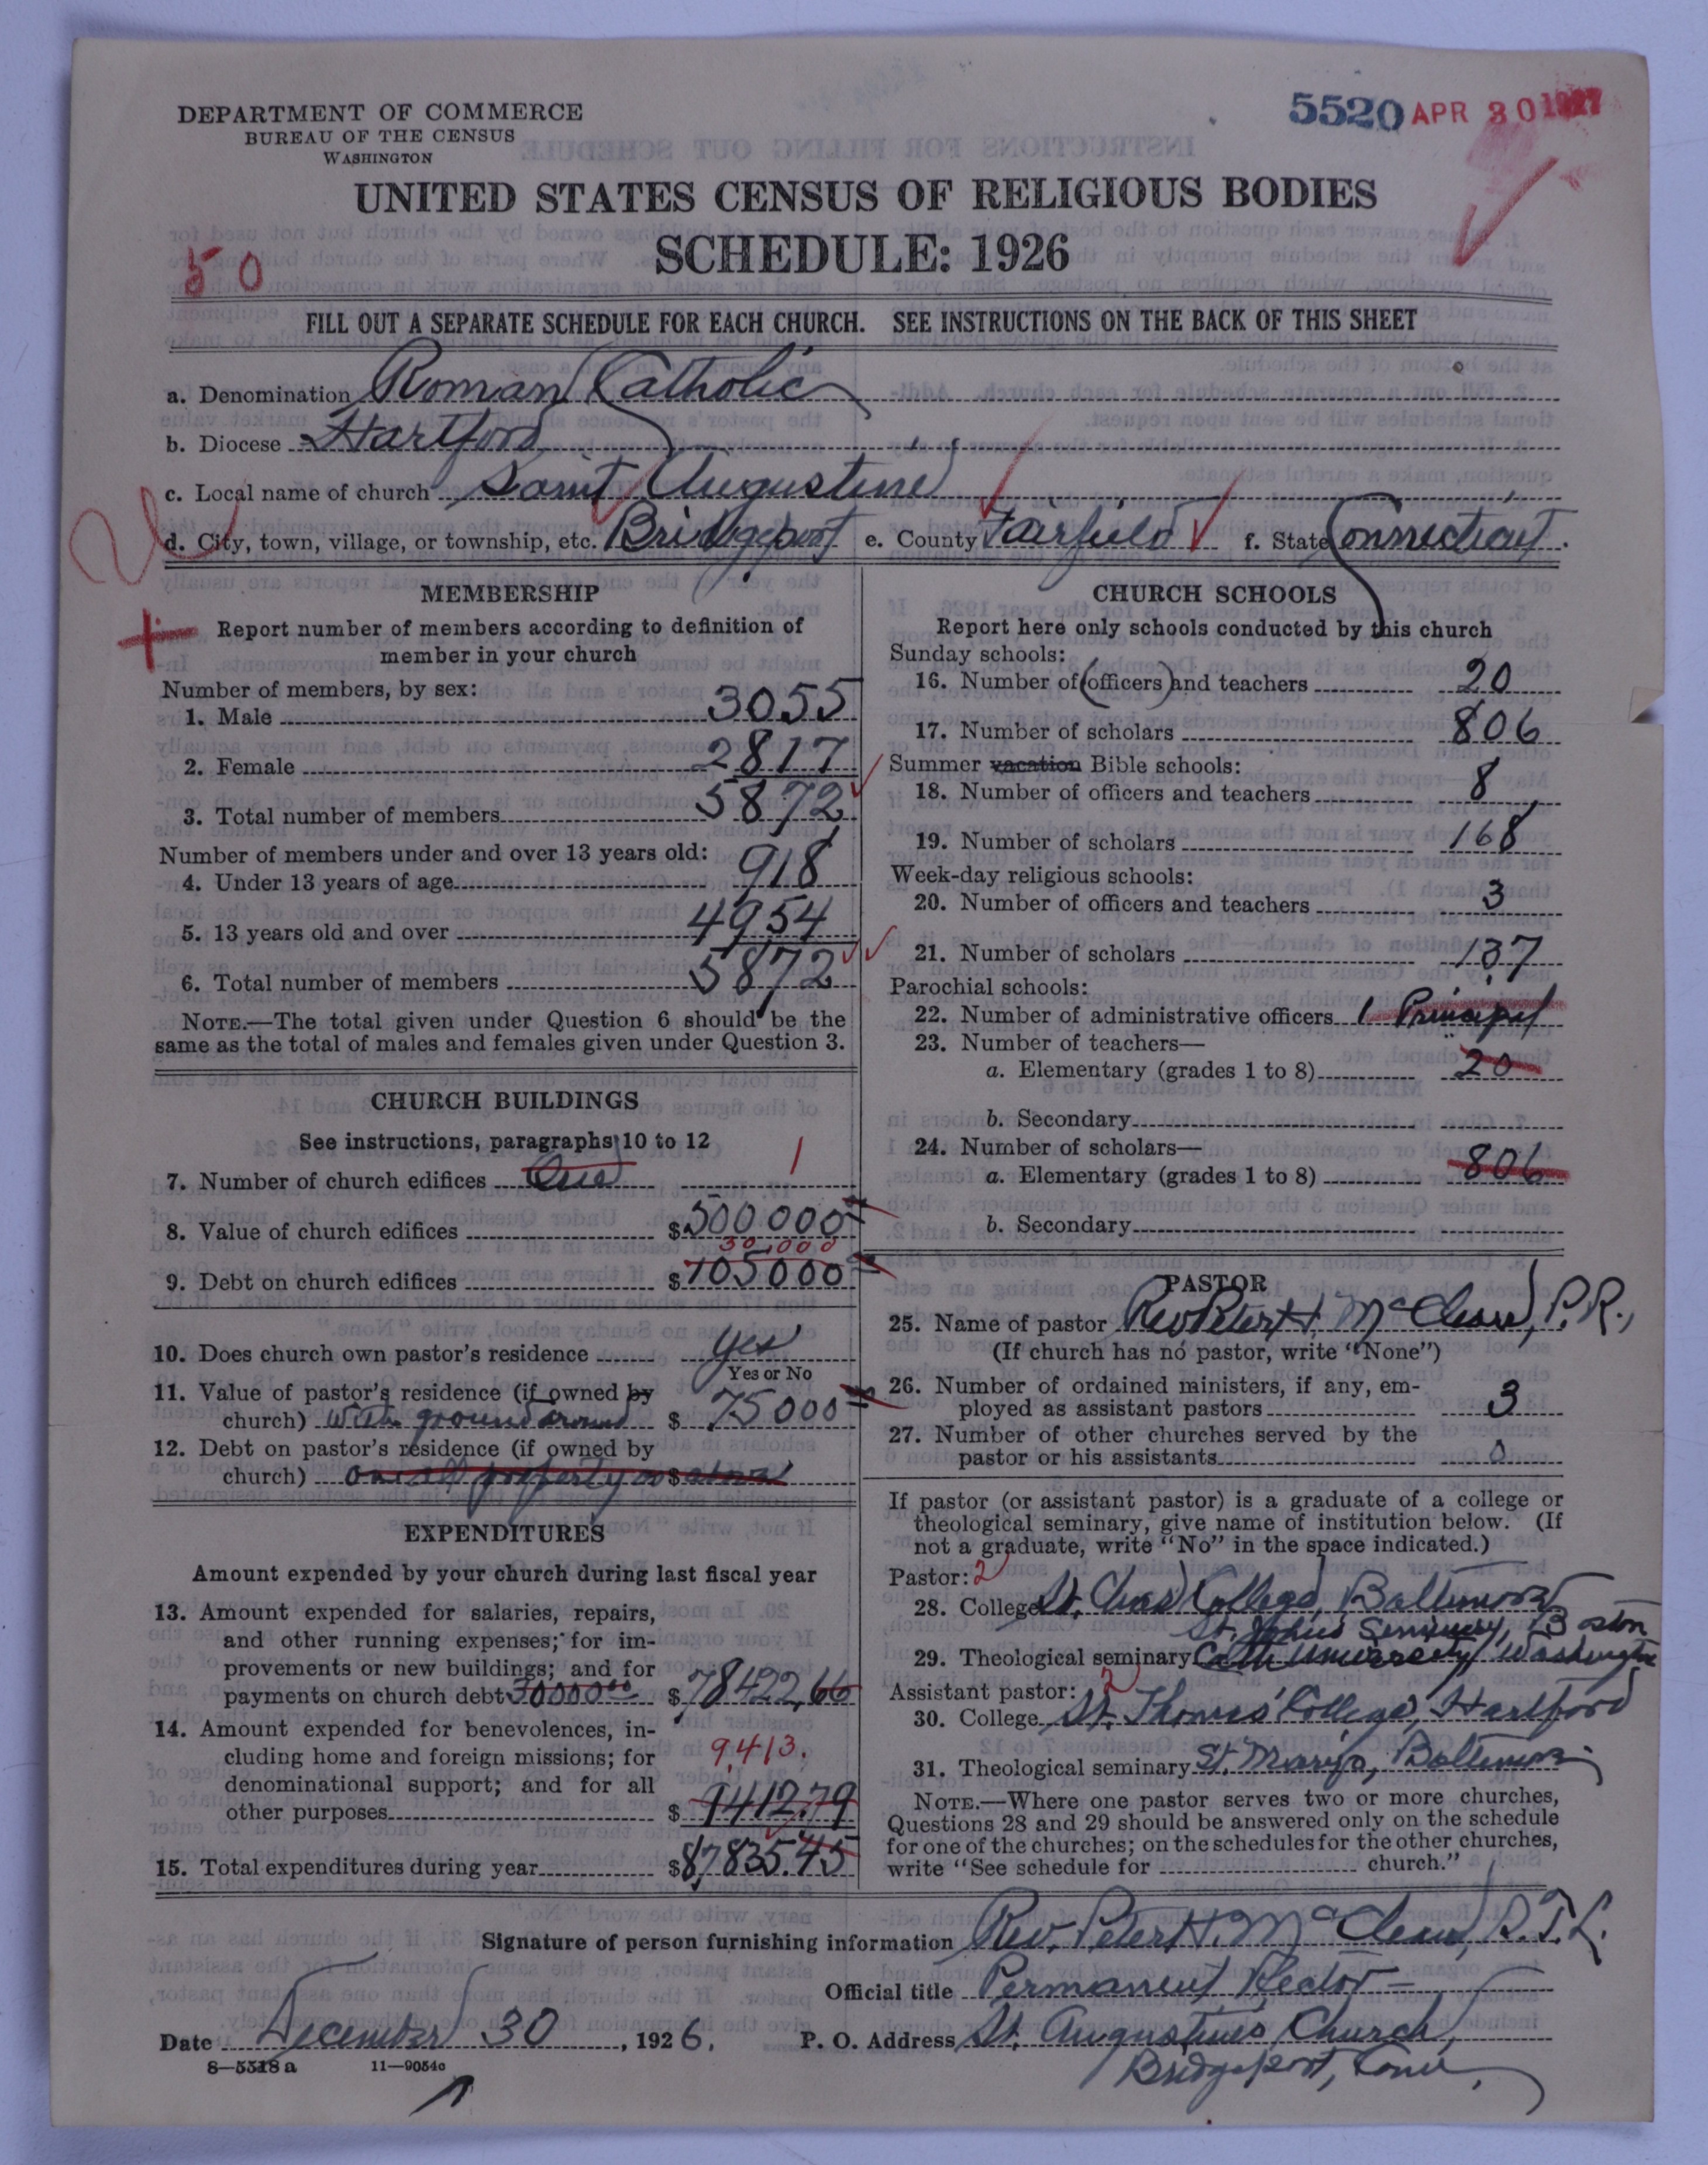 DEPARTMENT OF COMMERCE
BUREAU OF THE CENSUS
WASHINGTON
5520 APR 30 1927
UNITED STATES CENSUS OF RELIGIOUS BODIES
SCHEDULE: 1926
50
FILL OUT A SEPARATE SCHEDULE FOR EACH CHURCH. SEE INSTRUCTIONS ON THE BACK OF THIS SHEET
a. Denomination Roman Catholic
b. Diocese Hartford
c. Local name of church Saint Augustine
d. City, town, village, or township, etc. Bridgeport e. County Fairfield f. State Connecticut
MEMBERSHIP
Report number of members according to definition of
member in your church
Number of members, by sex:
1. Male 3055
2. Female 2817
3. Total number of members 5872
Number of members under and over 13 years old:
4. Under 13 years of age 918
5. 13 years old and over 4954
6. Total number of members 5872
NOTE.—The total given under Question 6 should be the
same as the total of males and females given under Question 3.
CHURCH BUILDINGS
See instructions, paragraphs 10 to 12
7. Number of church edifices One 1
8. Value of church edifices $500000
30,000
9. Debt on church edifices $105000
10. Does church own pastor's residence yes
Yes or No
11. Value of pastor's residence (if owned by
church) with ground around $ 75000
12. Debt on pastor's residence (if owned by
church) on all property $
EXPENDITURES
Amount expended by your church during last fiscal year
13. Amount expended for salaries, repairs,
and other running expenses; for im-
provements or new buildings; and for
payments on church debt 30000.00 $78422.66
14. Amount expended for benevolences, in-
cluding home and foreign missions; for 9,413.
denominational support; and for all
other purposes $ 9412.79
15. Total expenditures during year $87835.45
CHURCH SCHOOLS
Report here only schools conducted by this church
Sunday schools:
16. Number of (officers) and teachers 20
17. Number of scholars 806
Summer vacation Bible schools:
18. Number of officers and teachers 8
19. Number of scholars 168
Week-day religious schools:
20. Number of officers and teachers 3
21. Number of scholars 137
Parochial schools:
22. Number of administrative officers 1 Principal
23. Number of teachers—
a. Elementary (grades 1 to 8) 20
b. Secondary
24. Number of scholars—
a. Elementary (grades 1 to 8) 806
b. Secondary
PASTOR
25. Name of pastor Rev Peter H. McClean, P.R.,
(If church has no pastor, write "None")
26. Number of ordained ministers, if any, em-
ployed as assistant pastors 3
27. Number of other churches served by the
pastor or his assistants 0
If pastor (or assistant pastor) is a graduate of a college or
theological seminary, give name of institution below. (If
not a graduate, write "No" in the space indicated.)
Pastor: 2
28. College St. Chas College, Baltimore
St. John's Seminary, Boston
29. Theological seminary Cath University, Washington
Assistant pastor: 2
30. College St. Thomas' College, Hartford
31. Theological seminary St. Mary's, Baltimore
NOTE.—Where one pastor serves two or more churches,
Questions 28 and 29 should be answered only on the schedule
for one of the churches; on the schedules for the other churches,
write "See schedule for church."
Signature of person furnishing information Rev. Peter H. McClean, S.T.L.
Official title Permanent Rector
Date December 30, 1926. P. O. Address St. Augustine's Church,
Bridgeport, Conn.
8—5518 a 11—9054c